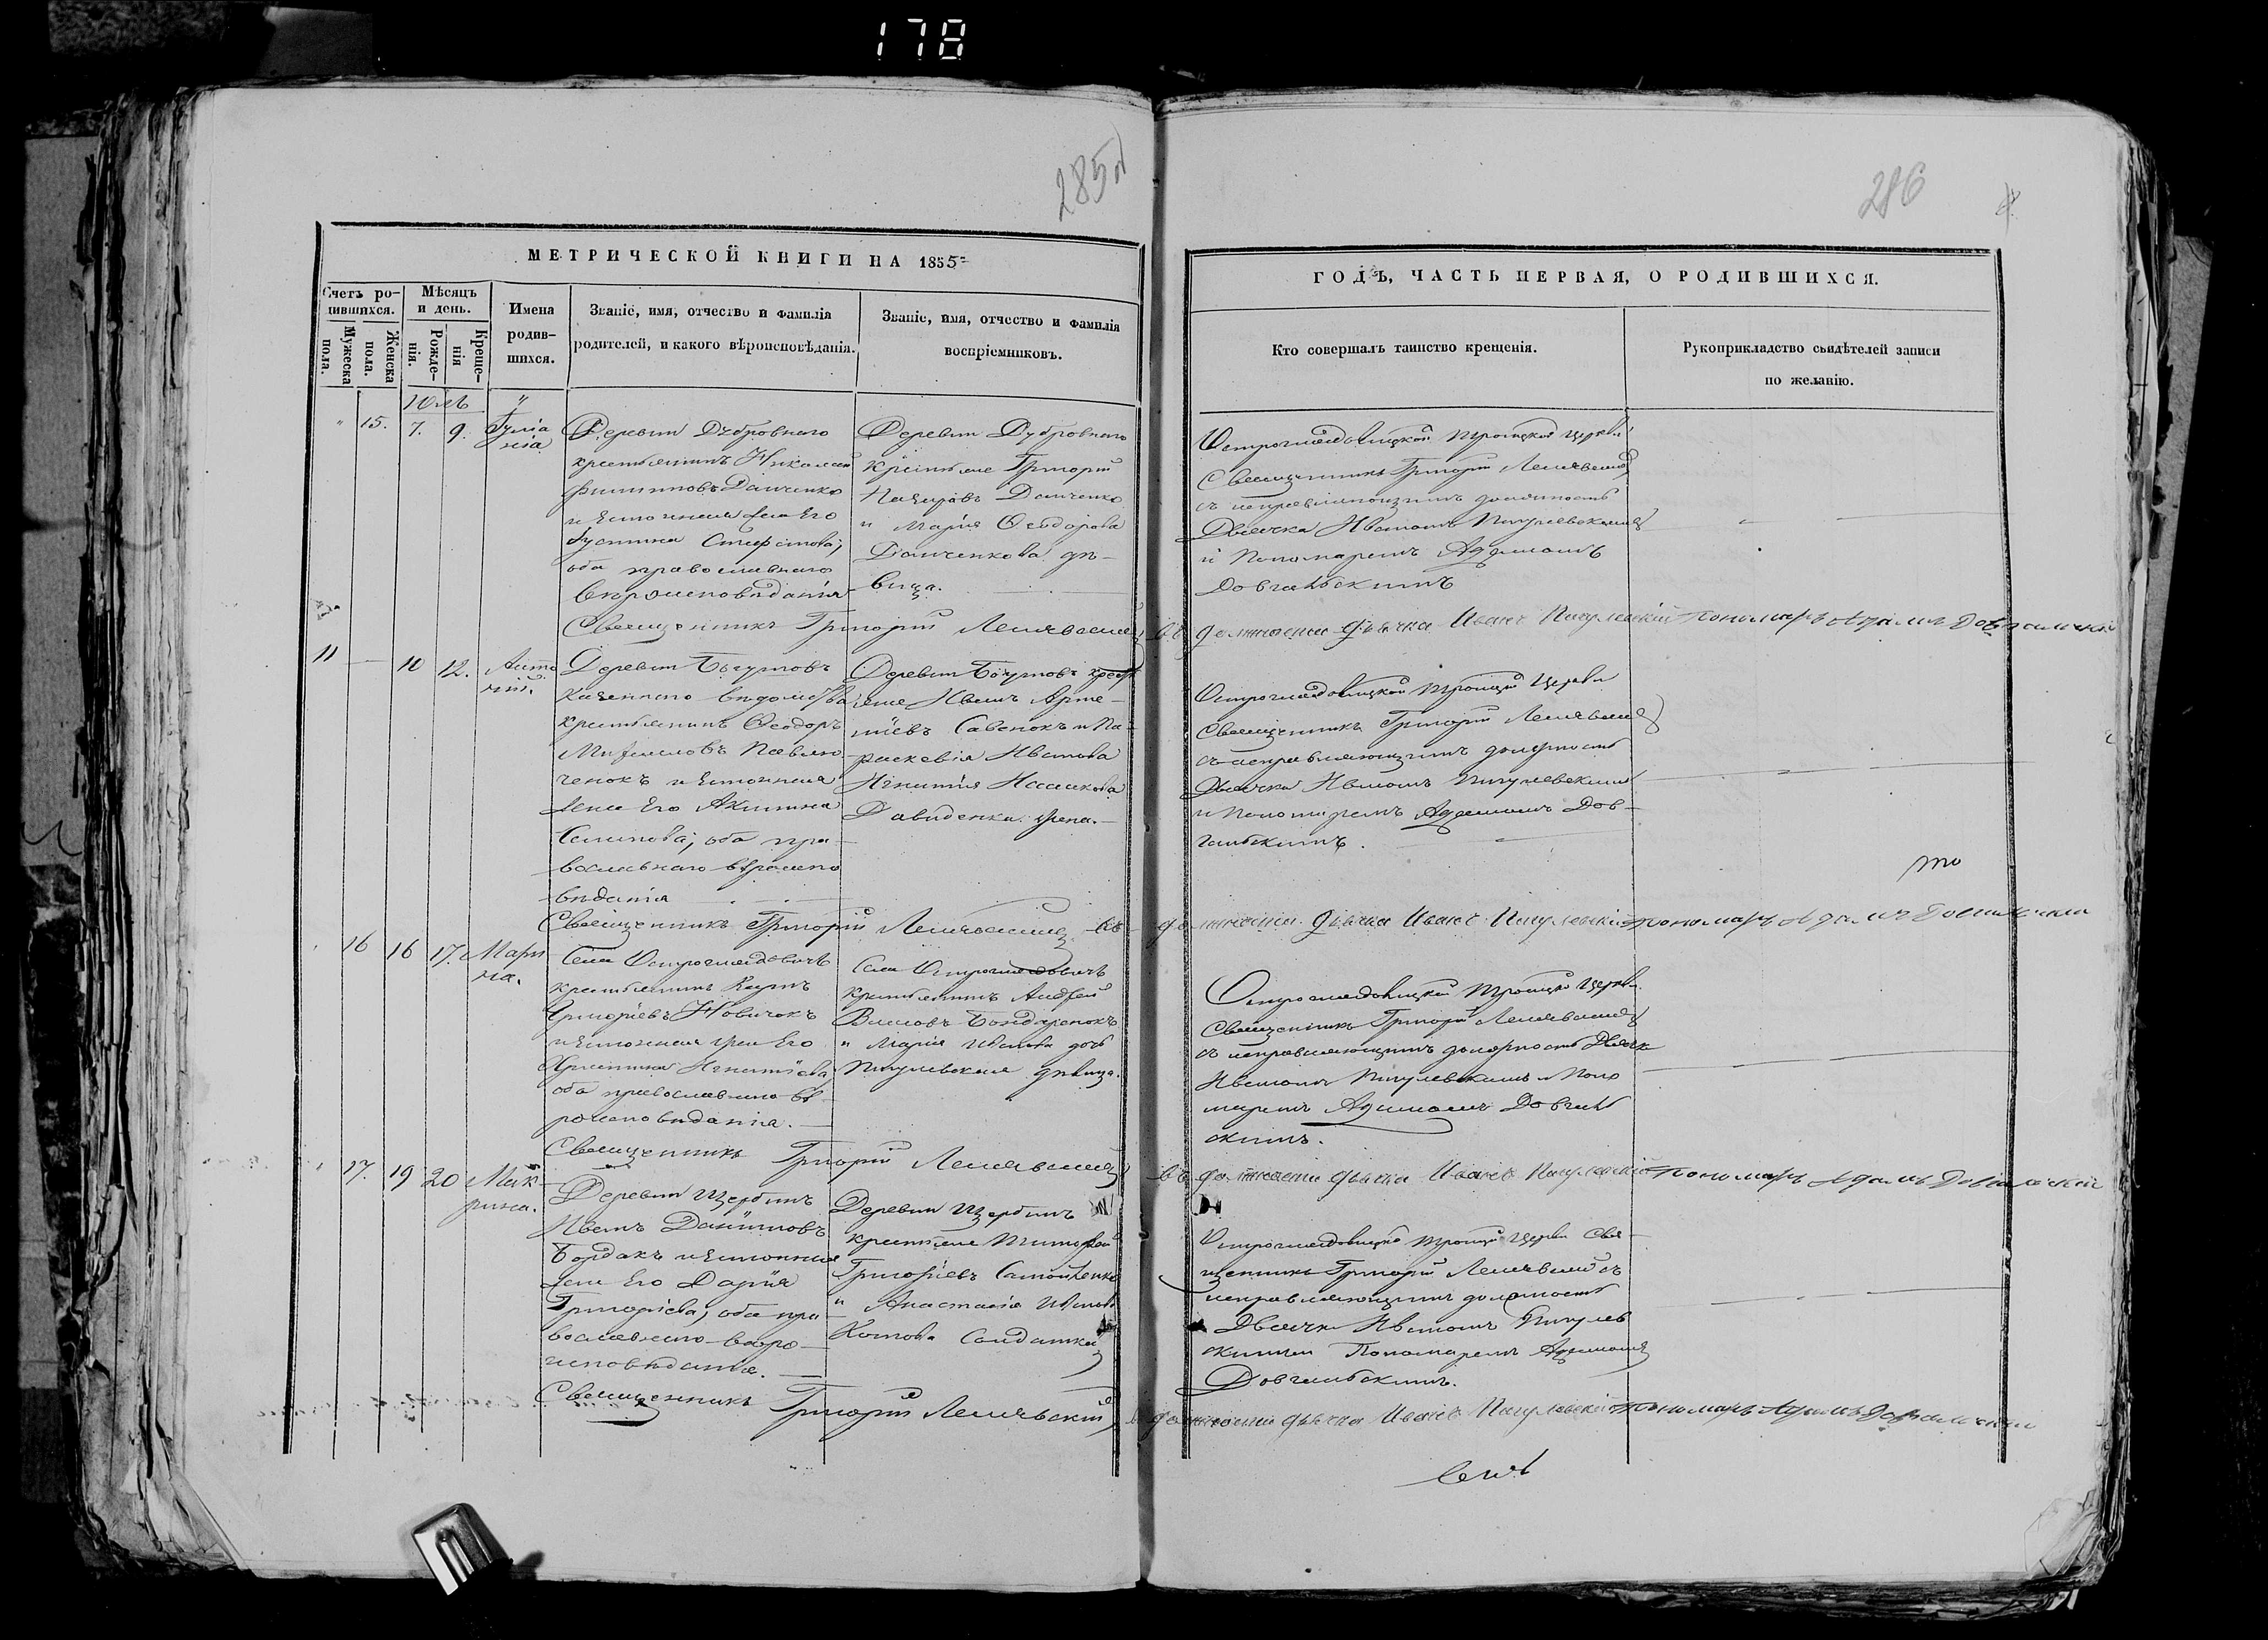 178
285об
286
МЕТРИЧЕСКОЙ КНИГИ НА 1855
Счетъ ро-
дившихся.
Мужеска пола.
Женска пола.
Мѣсяцъ
и день.
Рожде-
нія.
Креще-
нія
Имена
родив-
шихся.
Званіе, имя, отчество и фамилія
родителей, и какого вѣроисповѣданія.
Званіе, имя, отчество и фамилія
воспріемниковъ.
ГОДЪ, ЧАСТЬ ПЕРВАЯ, О РОДИВШИХСЯ.
Кто совершалъ таинство крещенія.
Рукоприкладство свидѣтелей записи
по желанію.
Юль
15. 7. 9. Іулiа
нiа
Деревни Дубровнаго
крестьянинъ Николай
Филиповъ Данченко
и законная жена Его
Іустина
оба православнаго
вѣроисповѣданія
Деревни Дубровнаго
крестьяне Григорій
Назаровъ Данченко
и Марія Ѳеодорова
Данченкова дѣ-
вица.
Остроглядовицкой Троицкой Церкви
Священникъ Григорій
съ исправляющимъ должность
Дьячка Иваномъ Пигулевскимъ
и Пономаремъ Адамомъ
Довгальскимъ
Священникъ Григорій
въ должности дьячка Иванъ Пигулевскій Пономарь Адамъ Довгальскій
11 10 12. Анто
ній.
Деревни
казеннаго вѣдомства
крестьянинъ Ѳеодоръ
Михайловъ Павлю
ченокъ и законная
жена Его Акилина
оба пра-
вославнаго вѣроиспо
вѣданія
Деревни
Иванъ Арте-
міевъ Савенокъ и Па-
раскевія Иванова
Игнатія Исаакова
Давиденки жена.
Остроглядовицкой Троицкой Церкви
Священникъ Григорій
съ исправляющимъ должность
Дьячка Иваномъ Пигулевскимъ
и Пономаремъ Адамомъ Дов-
гальскимъ.
то
Священникъ Григорій въ
должности дьячка Иванъ Пигулевскій Пономарь Адамъ Довгальскій
16 16 17. Мари
на.
Села Остроглядовичъ
крестьянинъ
Григоріевъ Новичокъ
и законная жена Его
Христина Игнатіева
оба православнаго вѣ-
роисповѣданія.
Села Остроглядовичъ
крестьянинъ Андрей
Власовъ Бондаренокъ
и Марія Иванова дочь
Пигулевская дѣвица.
Остроглядовицкой Троицкой Церкви
Священникъ Григорій
съ исправляющимъ должность Дьячка
Иваномъ Пигулевскимъ и Поно
маремъ Адамомъ Довгаль
скимъ.
Священникъ Григорій
въ должности дьячка Иванъ Пигулевскій Пономарь Адамъ Довгальскій
17. 19 20 Мак
рина.
Деревни Щербинъ
Иванъ Даніиловъ
Бордакъ и законная
жена Его Дарія
Григоріева, оба пра-
вославнаго вѣро-
исповѣданія.
Деревни Щербинъ
крестьяне Тимофей
Григоріевъ Самойленко
и Анастасія Иванова
Котова Солдатка
Остроглядовицкой Троицкой Церкви Свя-
щенникъ Григорій съ
исправляющимъ должность
Дьячка Иваномъ Пигулев
скимъ и Пономаремъ Адамомъ
Довгальскимъ.
Священникъ Григорій
въ должности дьячка Иванъ Пигулевскій Пономарь Адамъ Довгальскій